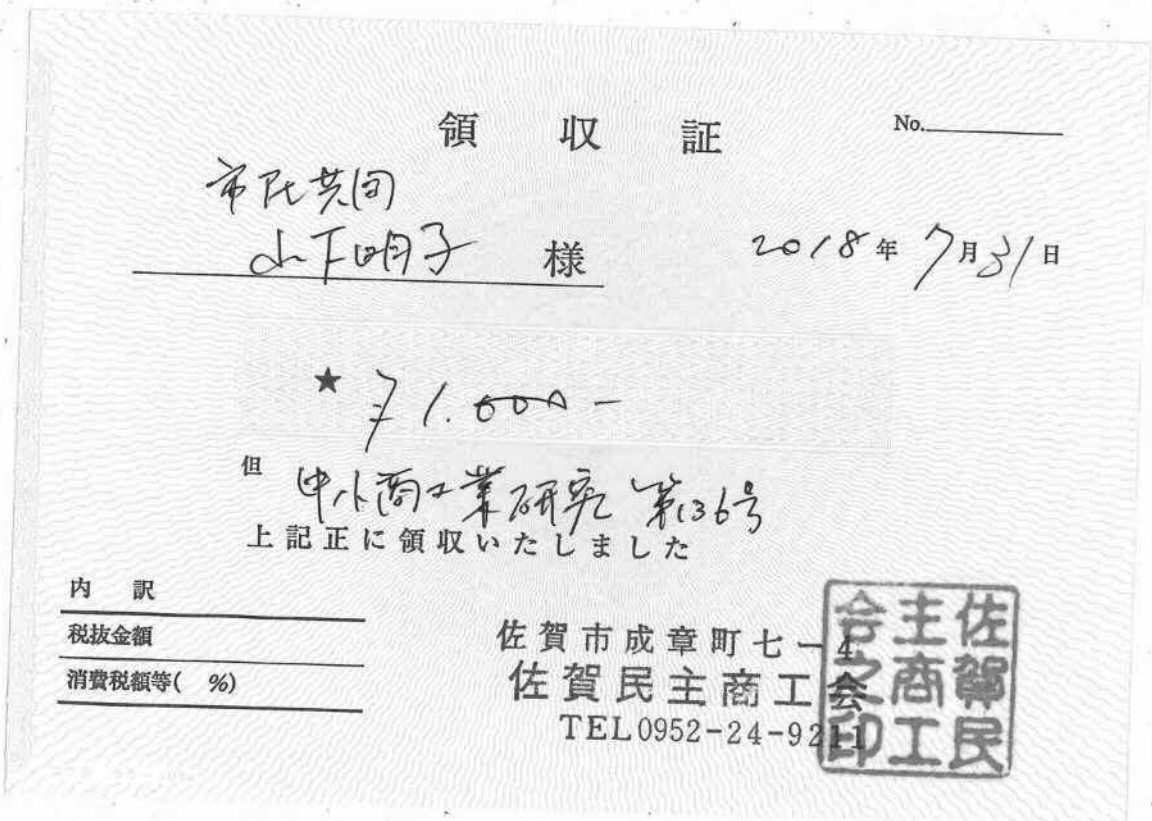 領 収 証
No.
市民共同
山下明子 様
2018年 7月31日
★ ¥1.000-
但 中小商工業研究 第136号
上記正に領収いたしました
内 訳
税抜金額
消費税額等( %)
佐賀市成章町七-4
佐賀民主商工会
TEL0952-24-9211
佐賀民主商工会之印